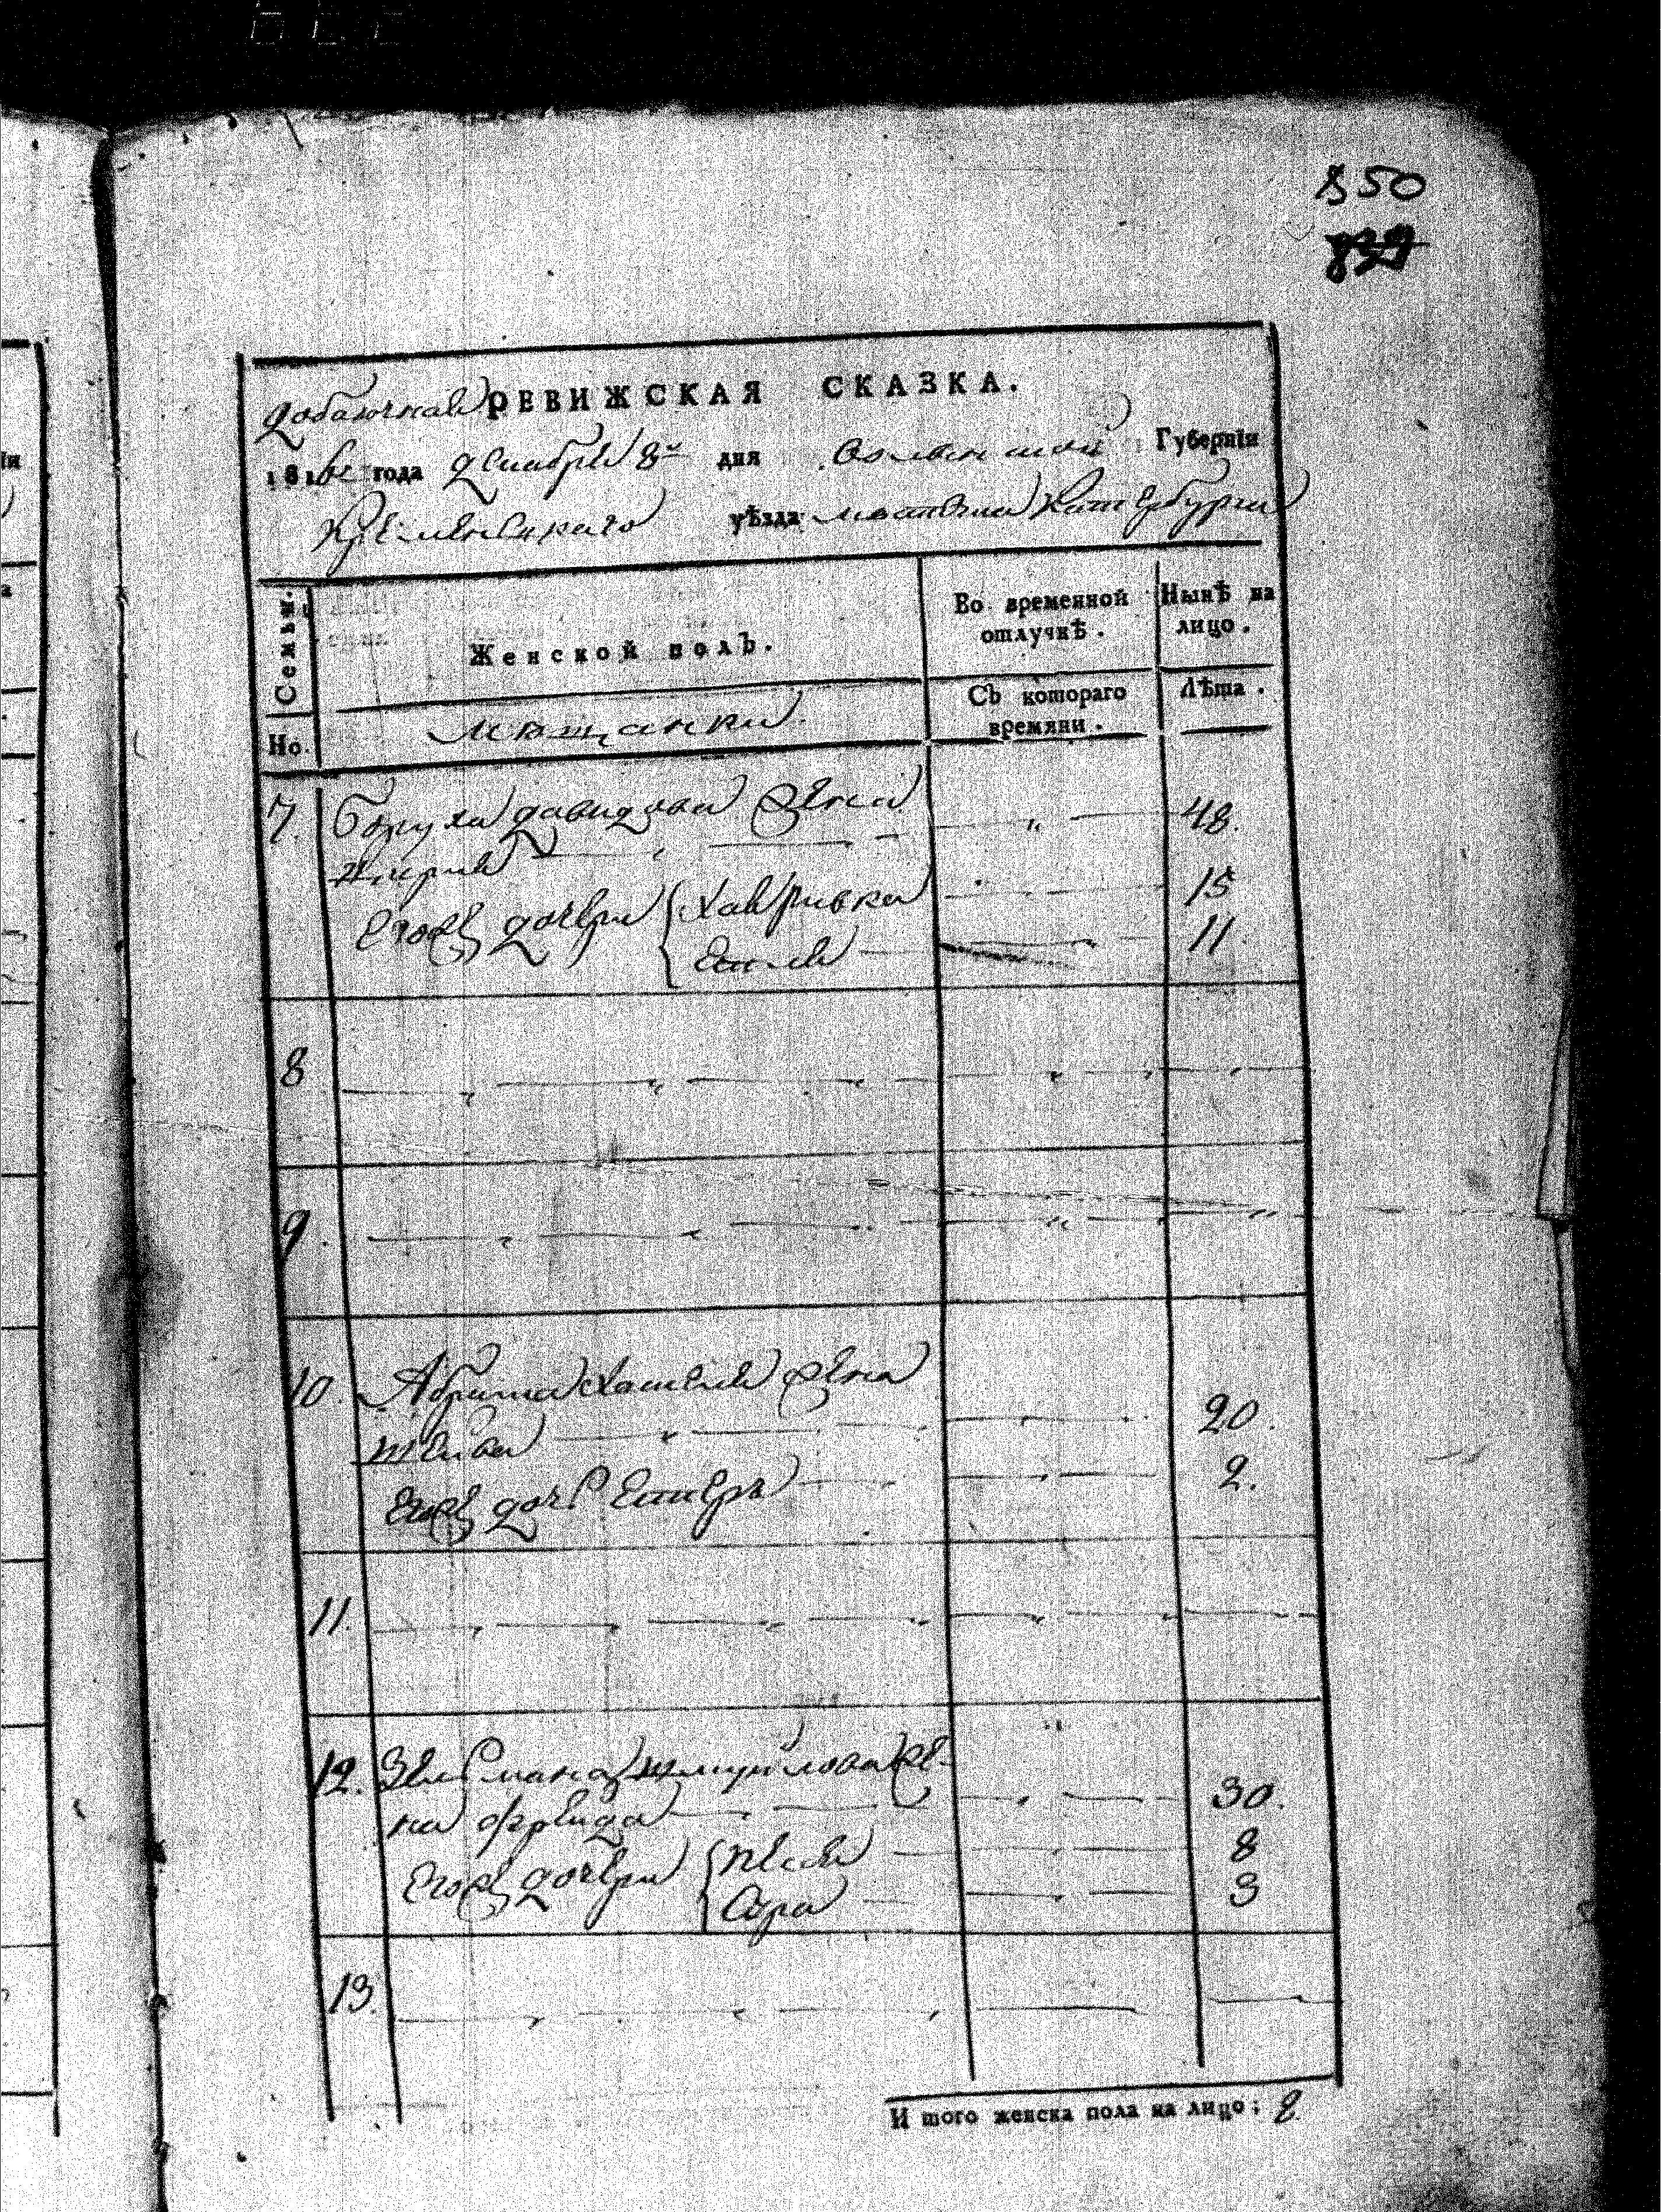 850
839
добавочная РЕВИЖСКАЯ СКАЗКА.
181 года Декабря 8го дня Волынской Губерніи
Кременецкаго уѣзда местечка Катербурга
Семьи.
Женской полъ.
Во временной отлучкѣ.
Нынѣ на лицо.
Но.
мещанки
Съ котораго времяни.
Лѣта.
7. Боруха давидова жена 48.
Его дочери Хая ривка 15
11
8
9.
10. Абрама жена
20.
Его дочь Естеръ 2.
11.
12. Зельмана шмуйлова же-
на фрейда 30.
Его дочери Песя 8
Сура 3
13.
И того женска пола на лицо; 8